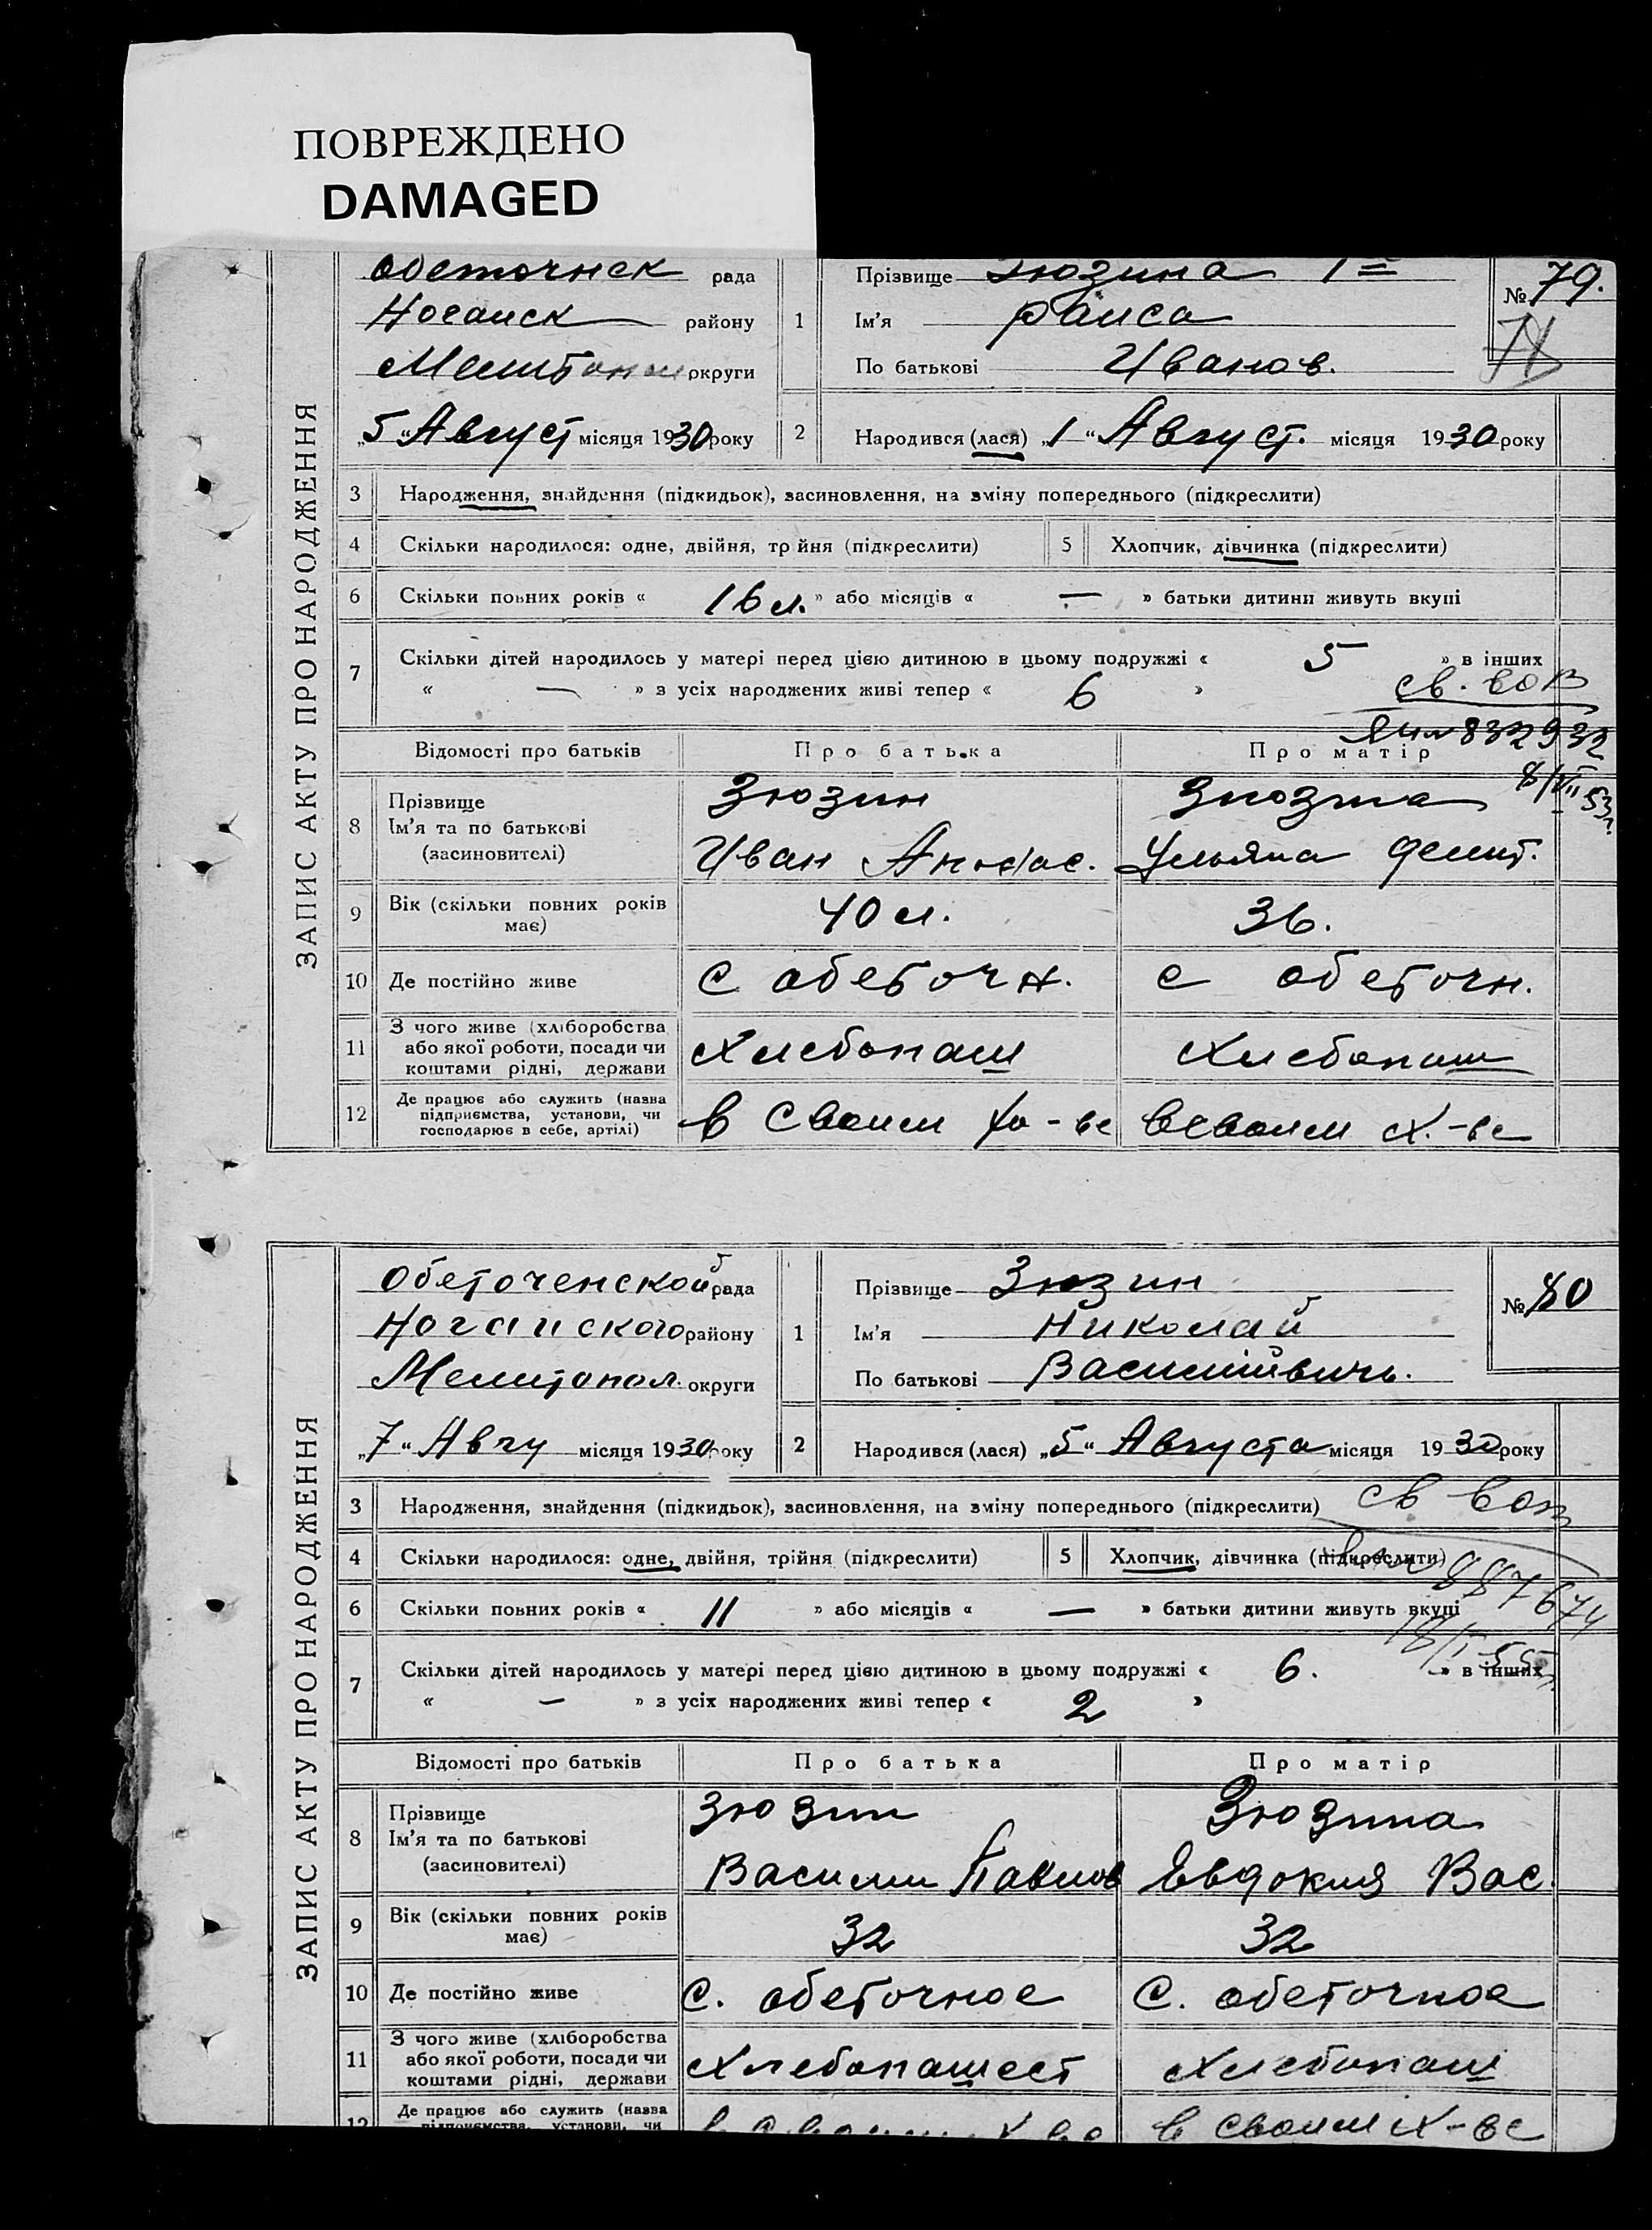 ПОВРЕЖДЕНО
DAMAGED
ЗАПИС АКТУ ПРО НАРОДЖЕННЯ
Обеточнск рада
Ногайск району
округи
„5“ Август місяця 1930 року
1 Прізвище Зюзина
Ім’я Раиса
По батькові Иванов.
№ 79.
2 Народився (лася) „1“ Август. місяця 1930 року
3 Народження, знайдення (підкидьок), засиновлення, на зміну попереднього (підкреслити)
4 Скільки народилося: одне, двійня, трійня (підкреслити) 5 Хлопчик, дівчинка (підкреслити)
6 Скільки повних років « 16 л. » або місяців « — » батьки дитини живуть вкупі
7 Скільки дітей народилось у матері перед цією дитиною в цьому подружжі « 5 » в інших
« — » з усіх народжених живі тепер « 6 »
832932
8/VII 53 г.
Відомості про батьків Про батька Про матір
8 Прізвище Зюзин Зюзина
Ім’я та по батькові
(засиновителі) Иван Ульяна
9 Вік (скільки повних років 40 л. 36.
має)
10 Де постійно живе с Обеточн. с Обеточн.
11 З чого живе (хліборобства
або якої роботи, посади чи Хлебопаш Хлебопаш
коштами рідні, держави
12 Де працює або служить (назва
підприємства, установи, чи в своем хо-ве в своем х.-ве
господарює в себе, артілі)
ЗАПИС АКТУ ПРО НАРОДЖЕННЯ
Обеточенской рада
Ногайского району
Мелитопол. округи
„7“ Авгу місяця 1930 року
1 Прізвище Зюзин
Ім’я Николай
По батькові
№ 80
2 Народився (лася) „5“ Августа місяця 1930 року
3 Народження, знайдення (підкидьок), засиновлення, на зміну попереднього (підкреслити)
4 Скільки народилося: одне, двійня, трійня (підкреслити) 5 Хлопчик, дівчинка (підкреслити)
887674
6 Скільки повних років « 11 » або місяців « — » батьки дитини живуть вкупі
7 Скільки дітей народилось у матері перед цією дитиною в цьому подружжі « 6. » в інших
« — » з усіх народжених живі тепер « 2 »
Відомості про батьків Про батька Про матір
8 Прізвище Зюзин Зюзина
Ім’я та по батькові
(засиновителі) Василий Павлов Евдокия Вас.
9 Вік (скільки повних років 32 32
має)
10 Де постійно живе С. Обеточное С. Обеточное
11 З чого живе (хліборобства
або якої роботи, посади чи Хлебопашест Хлебопаш
коштами рідні, держави
12 Де працює або служить (назва
підприємства, установи, чи в своем х-ве